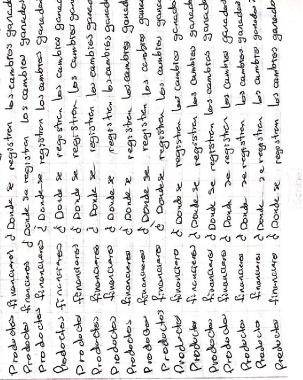 Productos financieros ¿ Donde se registren los cambios ganado
Productos financieros ¿ Donde se registren los cambios ganado
Productos financieros ¿ Donde se registren los cambios ganados
Productos financieros ¿ Donde se registren los cambios gana
Productos financieros ¿ Donde se registren los cambios gan
Productos financieros ¿ Donde se registren los cambios ganad
Productos financieros ¿ Donde se registren los cambios ganad
Productos financieros ¿ Donde se registren los cambios gana
Productos financieros ¿ Donde se registren los cambios gana
Productos financieros ¿ Donde se registren los cambios gana
Producto financiero ¿ Donde se registren los cambio ganado
Producto financiero ¿ Donde se registren los cambios ganado
Producto financiero ¿ Donde se registren los cambios ganado
Producto financiero ¿ Donde se registren los cambio ganado
Producto financiero ¿ Donde se registren los cambio ganado
Producto financiero ¿ Donde se registren los cambios ganado
Producto financiero ¿ Donde se registren los cambio ganado